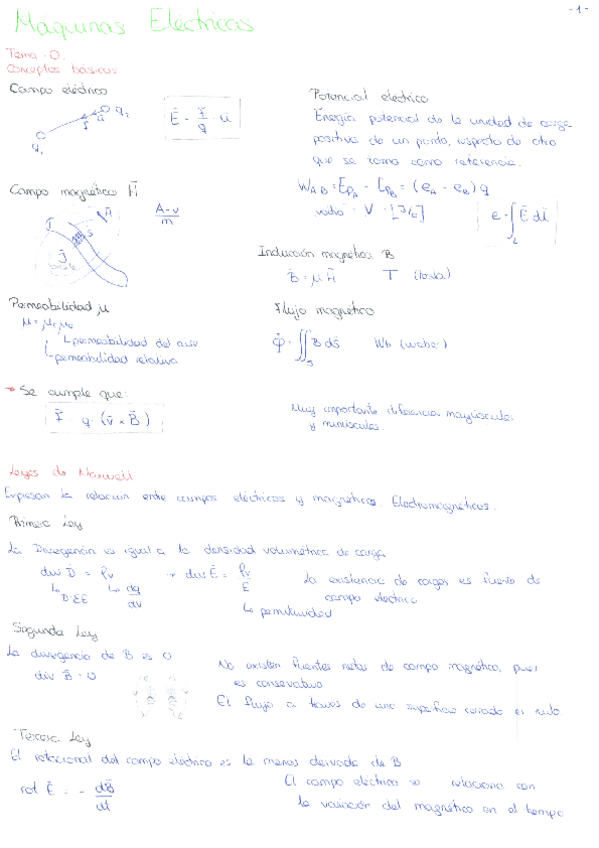 - 1 -
Máquinas Eléctricas
Tema - 0.
Conceptos básicos
Campo eléctrico
q₁ q₂ f̄ ū
Ē = f̄/q · ū
Potencial eléctrico
Energía potencial de la unidad de carga
positiva de un punto, respecto de otro
que se toma como referencia.
W_AB = E_PA - E_PB = (e_A - e_B) q
voltio · V = [J/C]
e = ∫_L Ē dl̄
Campo magnético H̄
A-v/m
Inducción magnética B
B̄ = μ H̄ T (tesla)
Permeabilidad μ
μ = μᵣ μ₀
permeabilidad del aire
permeabilidad relativa
Flujo magnético
φ = ∬_S B̄ ds̄ Wb (weber)
→ Se cumple que:
f̄ = q · (v̄ × B̄)
Muy importante diferencia mayúsculas
y minúsculas.
Leyes de Maxwell
Expresan la relación entre campos eléctricos y magnéticos. Electromagnéticos.
Primera Ley
La Divergencia es igual a la densidad volumétrica de carga
div D̄ = ρv → div Ē = ρv/ε
D=εE dq/dv
permitividad
La existencia de cargas es fuente de
campo eléctrico
Segunda Ley
La divergencia de B es 0
div B̄ = 0
No existen fuentes netas de campo magnético, pues
es conservativo
El flujo a través de una superficie cerrada es nulo.
Tercera Ley
El rotacional del campo eléctrico es la menos derivada de B
rot Ē = - dB̄/dt
El campo eléctrico se relaciona con
la variación del magnético en el tiempo